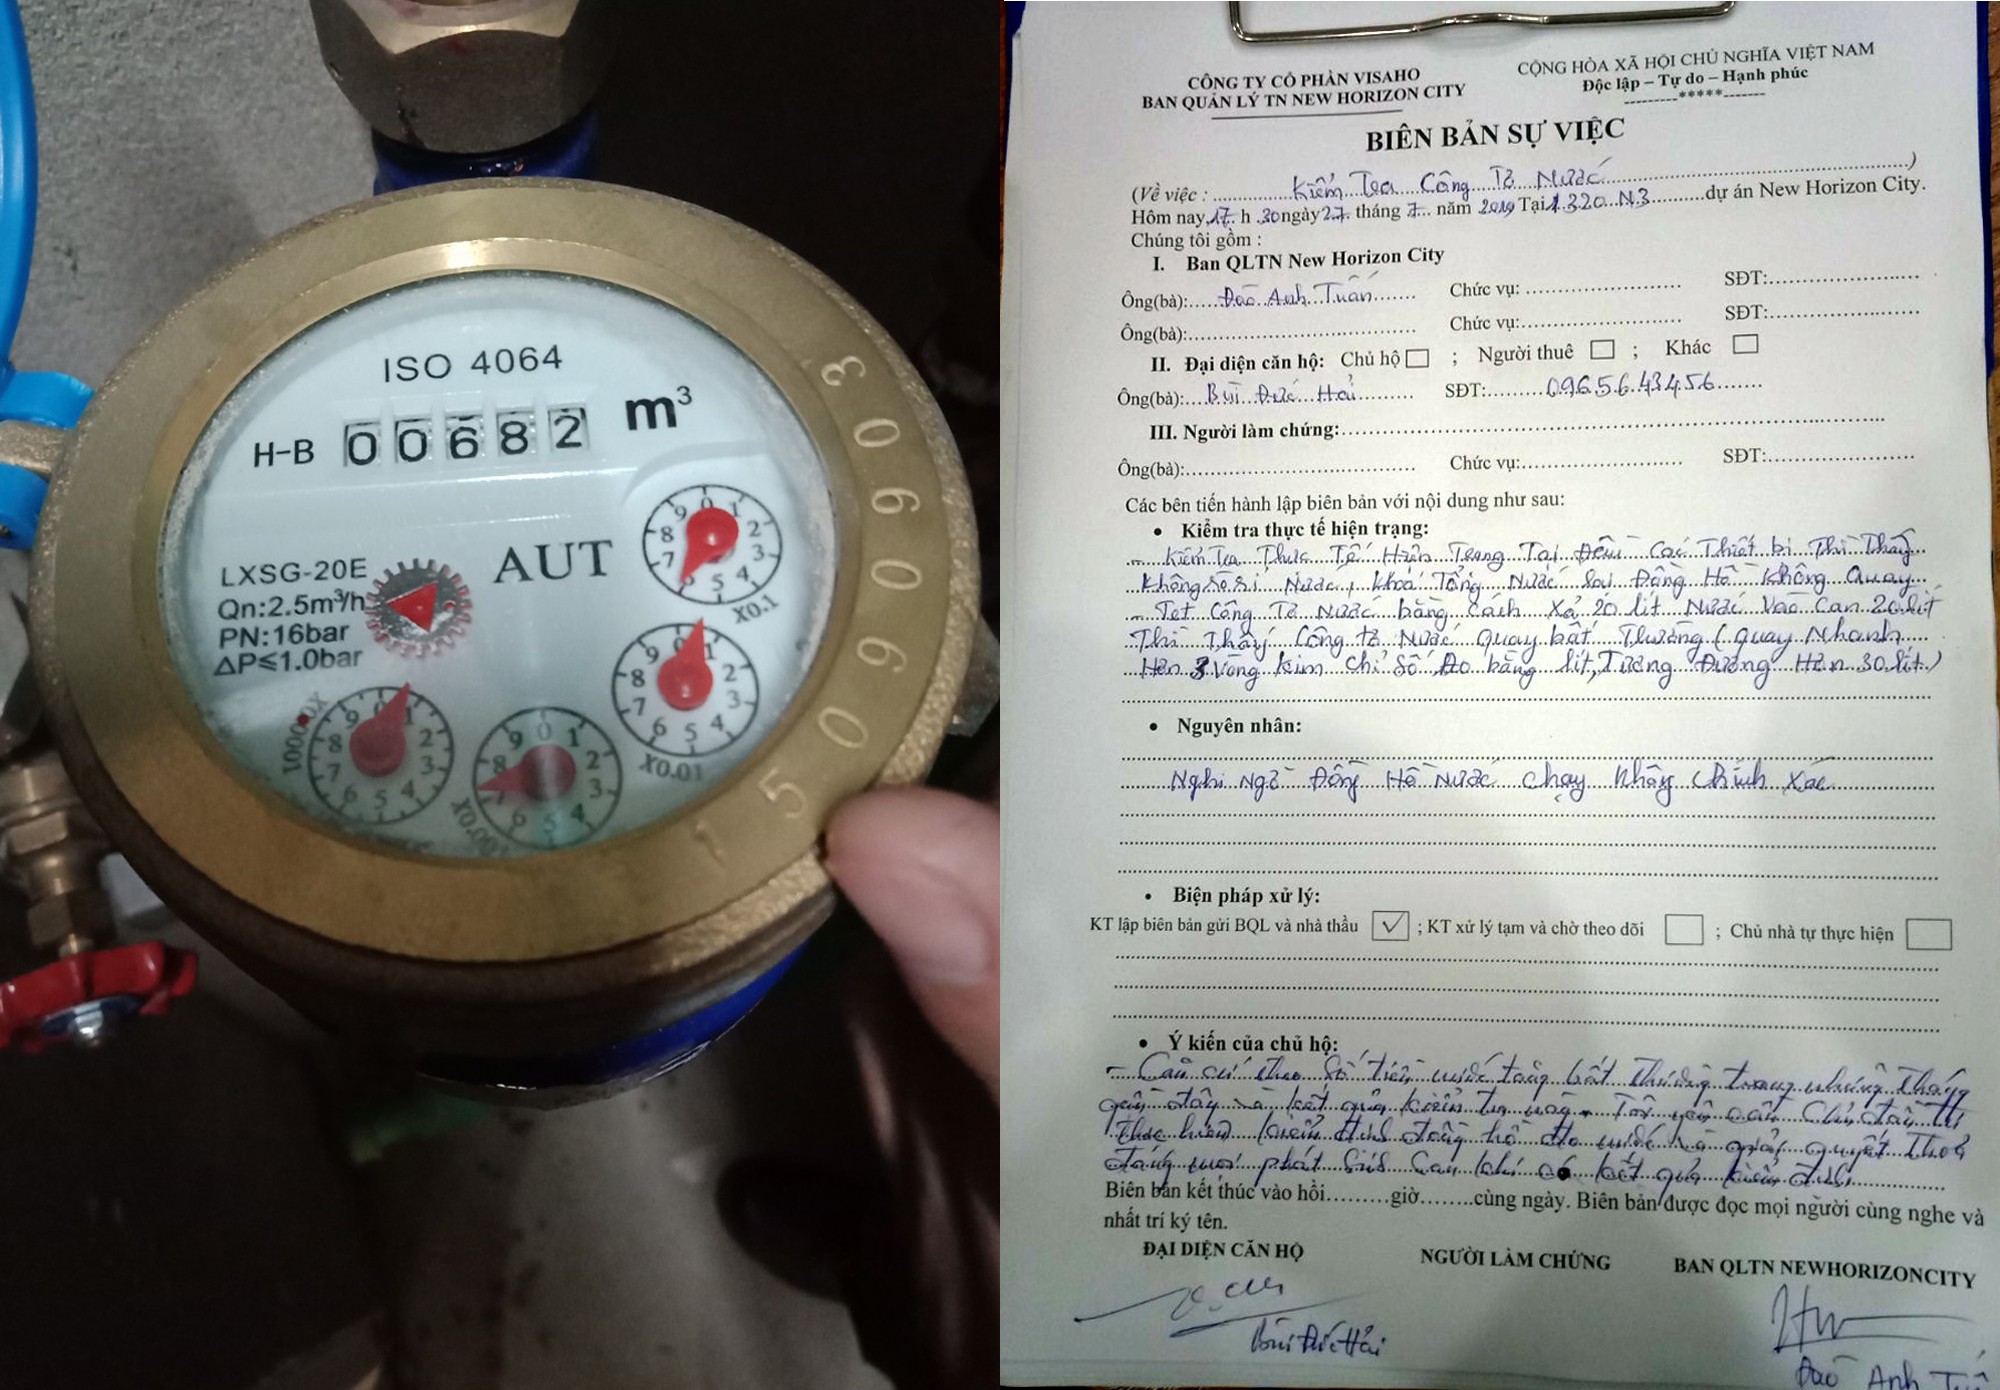 ISO 4064
H-B 00682 m³
AUT
LXSG-20E
Qn:2.5m³/h
PN:16bar
ΔP≤1.0bar
X0.1
X0.01
X0.001
X0.0001
15090903
CÔNG TY CỔ PHẦN VISAHO
BAN QUẢN LÝ TN NEW HORIZON CITY
CỘNG HÒA XÃ HỘI CHỦ NGHĨA VIỆT NAM
Độc lập – Tự do – Hạnh phúc
*****
BIÊN BẢN SỰ VIỆC
(Về việc : Kiểm Tra Công Tơ Nước)
Hôm nay, 17 h 30 ngày 27 tháng 7 năm 2019 Tại 1320 N3 dự án New Horizon City.
Chúng tôi gồm :
I. Ban QLTN New Horizon City
Ông(bà): Đào Anh Tuấn Chức vụ: SĐT:
Ông(bà): Chức vụ: SĐT:
II. Đại diện căn hộ: Chủ hộ ; Người thuê ; Khác
Ông(bà): Bùi Đức Hải SĐT: 0965643456
III. Người làm chứng:
Ông(bà): Chức vụ: SĐT:
Các bên tiến hành lập biên bản với nội dung như sau:
• Kiểm tra thực tế hiện trạng:
- Kiểm Tra Thực Tế Hiện Trạng Tại Đều Các Thiết bị Thì Thấy
Không Rò Rỉ Nước, Khoá Tổng Nước lại Đồng Hồ Không Quay
- Tet Công Tơ Nước bằng cách Xả 20 lít Nước Vào Can 20 lít
Thì Thấy Công tơ Nước quay bất Thường (quay Nhanh
Hơn 3 Vòng kim chỉ Số Đo bằng lít, Tương Đương Hơn 30 lít)
• Nguyên nhân:
Nghi Ngờ Đồng Hồ Nước chạy Không Chính Xác
• Biện pháp xử lý:
KT lập biên bản gửi BQL và nhà thầu ✓ ; KT xử lý tạm và chờ theo dõi ; Chủ nhà tự thực hiện
• Ý kiến của chủ hộ:
- Căn cứ theo số tiền nước tăng bất thường trong những tháng
gần đây và kết quả kiểm tra này. Tôi yêu cầu Chủ đầu tư
thực hiện kiểm định đồng hồ đo nước và giải quyết thoả
đáng mọi phát sinh sau khi có kết quả kiểm định.
Biên bản kết thúc vào hồi giờ cùng ngày. Biên bản được đọc mọi người cùng nghe và
nhất trí ký tên.
ĐẠI DIỆN CĂN HỘ NGƯỜI LÀM CHỨNG BAN QLTN NEWHORIZONCITY
Bùi Đức Hải
Đào Anh